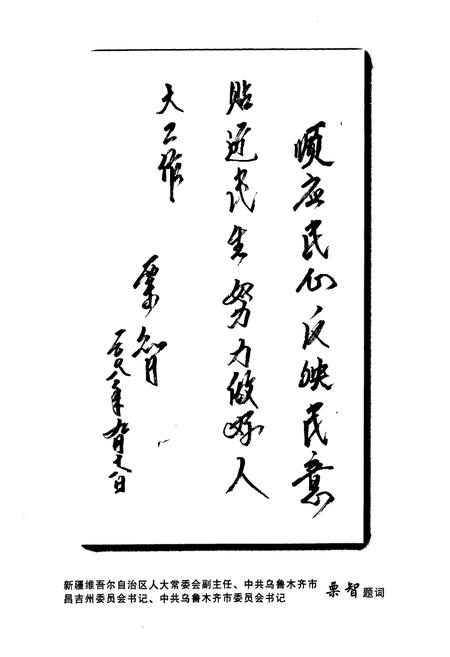 顺应民心反映民意
贴近民生努力做好人
大工作
栗智
二〇〇八年九月
新疆维吾尔自治区人大常委会副主任、中共乌鲁木齐市
昌吉州委员会书记、中共乌鲁木齐市委员会书记
栗智题词